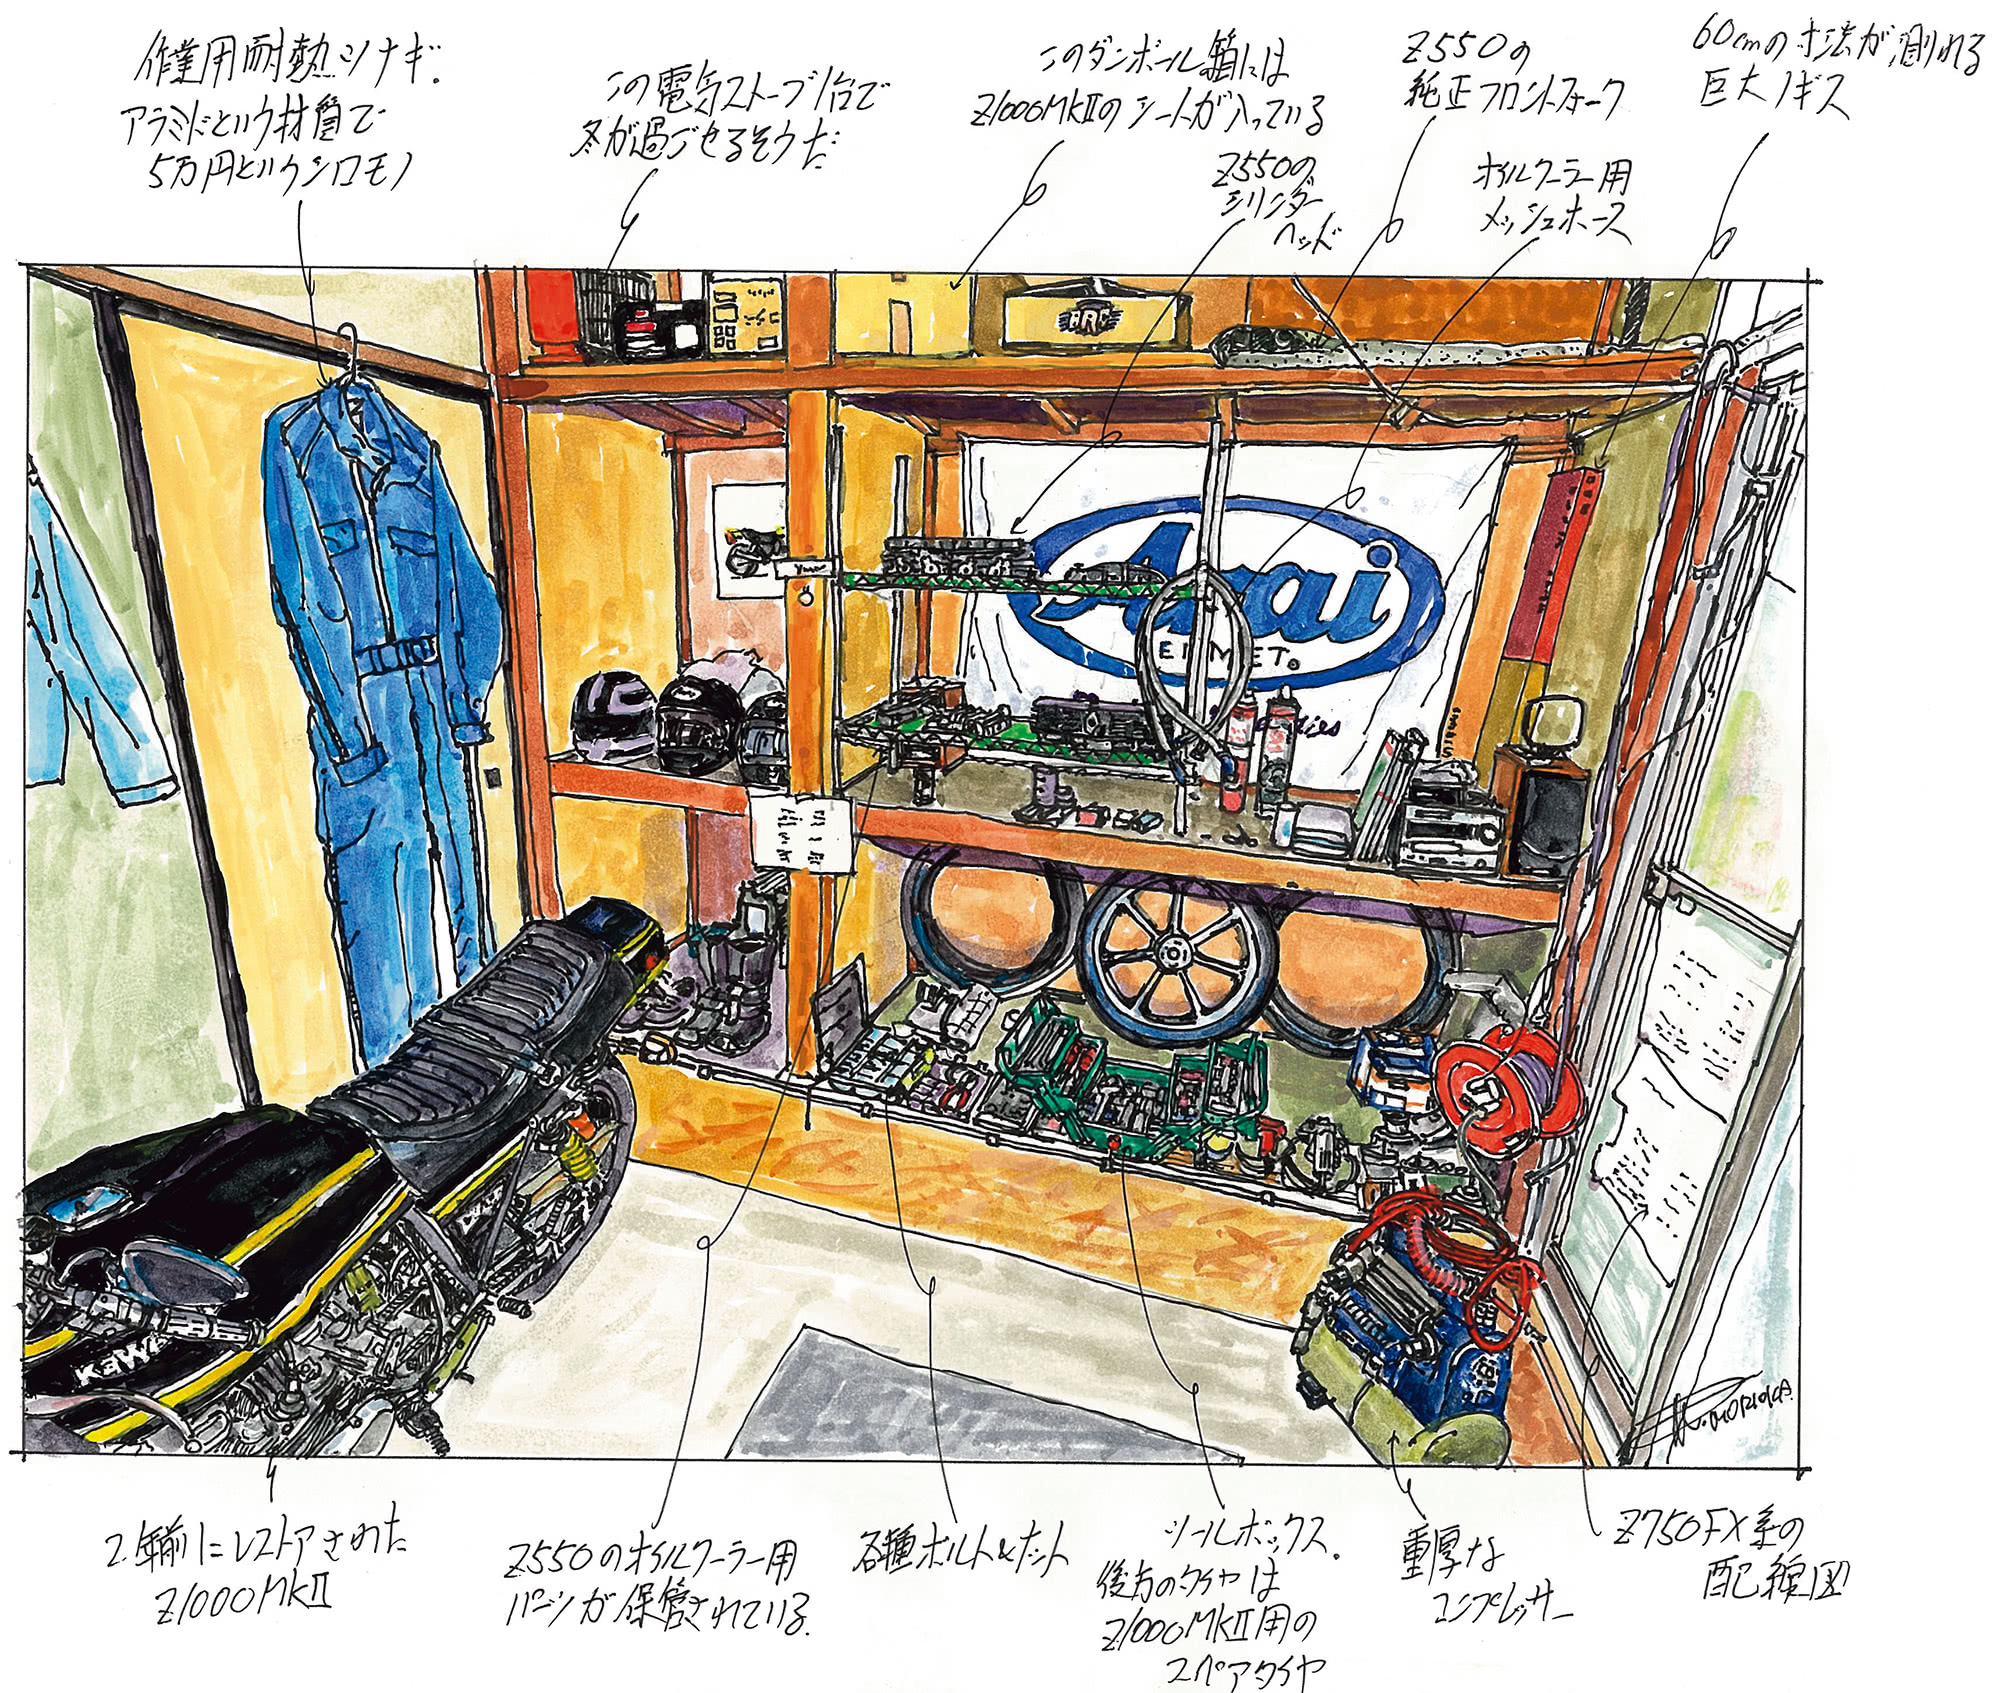 作業用耐熱ツナギ.
アラミドという材質で
5万円というシロモノ
この電気ストーブ1台で
冬が過ごせるそうだ
このダンボール箱には
Z1000MkIIのシートが入っている
Z550の
シリンダー
ヘッド
Z550の
純正フロントフォーク
オイルクーラー用
メッシュホース
60cmの寸法が測れる
巨大ノギス
Arai
KAWA
2年前にレストアされた
Z1000MkII
Z550のオイルクーラー用
パーツが保管されている.
各種ボルト&ナット
ツールボックス.
後方のタイヤは
Z1000MkII用の
スペアタイヤ
重厚な
コンプレッサー
Z750FX系の
配線図